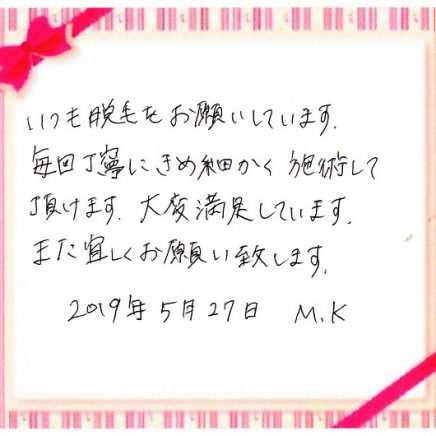 いつも脱毛をお願いしています.
毎回丁寧にきめ細かく施術して
頂けます. 大変満足しています.
また宜しくお願い致します.
2019年5月27日 M.K